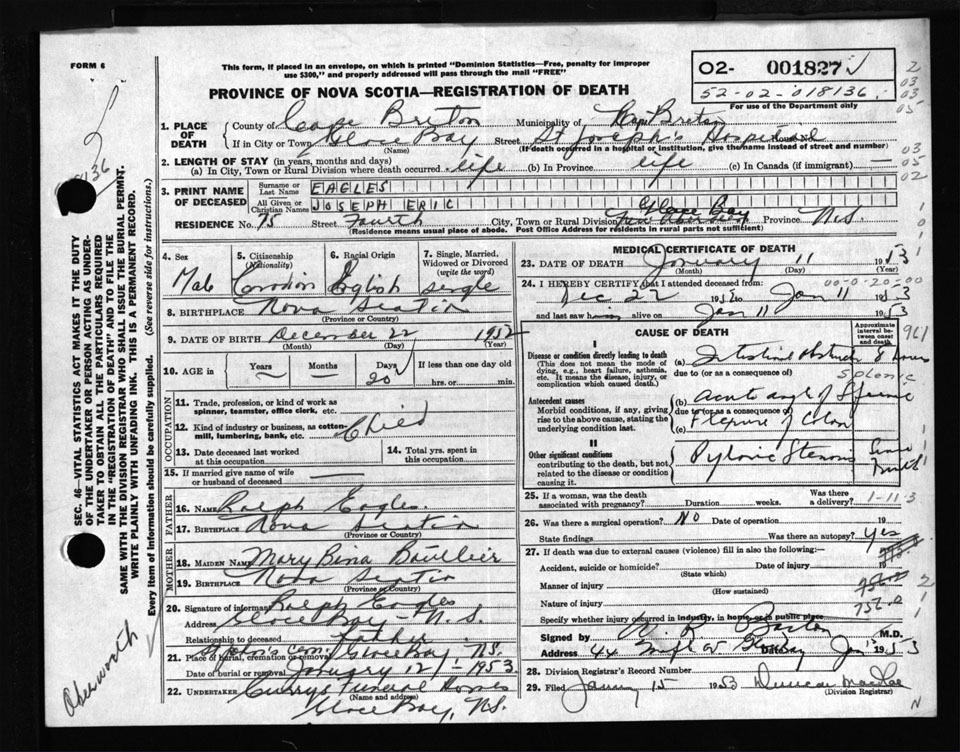 FORM 6
This form, if placed in an envelope, on which is printed "Dominion Statistics—Free, penalty for improper
use $300," and properly addressed will pass through the mail "FREE"
O2- 001827
52-02-018136
For use of the Department only
PROVINCE OF NOVA SCOTIA—REGISTRATION OF DEATH
1. PLACE OF DEATH
County of Cape Breton Municipality of Cape Breton
If in City or Town Glace Bay Street St Joseph's Hospital House No.
(Name) (If death occurred in a hospital or institution, give the name instead of street and number)
2. LENGTH OF STAY (in years, months and days)
(a) In City, Town or Rural Division where death occurred life (b) In Province life (c) In Canada (if immigrant) —
3. PRINT NAME OF DECEASED
Surname or Last Name EAGLES
All Given or Christian Names JOSEPH ERIC
RESIDENCE No. 75 Street Fourth City, Town or Rural Division Glace Bay Province N.S.
(Residence means usual place of abode. Post Office Address for residents in rural parts not sufficient)
4. Sex Male
5. Citizenship (Nationality) Canadian
6. Racial Origin English
7. Single, Married, Widowed or Divorced (write the word) single
8. BIRTHPLACE Nova Scotia
(Province or Country)
9. DATE OF BIRTH December 22 1952
(Month) (Day) (Year)
10. AGE in Years Months Days 20 If less than one day old
hrs. or min.
OCCUPATION
11. Trade, profession, or kind of work as
spinner, teamster, office clerk, etc.
12. Kind of industry or business, as cotton-
mill, lumbering, bank, etc. Child
13. Date deceased last worked
at this occupation
14. Total yrs. spent in
this occupation
15. If married give name of wife
or husband of deceased
FATHER
16. Name Ralph Eagles
17. Birthplace Nova Scotia
(Province or Country)
MOTHER
18. Maiden Name Mary Bina
19. Birthplace Nova Scotia
(Province or Country)
20. Signature of informant Ralph Eagles
Address Glace Bay - N.S.
Relationship to deceased Father
21. Place of burial, cremation or removal Glace Bay N.S.
Date of burial or removal January 12 1953
22. UNDERTAKER Curry's Funeral Homes
(Name and address)
Glace Bay, N.S.
MEDICAL CERTIFICATE OF DEATH
23. DATE OF DEATH January 11 1953
(Month) (Day) (Year)
24. I HEREBY CERTIFY, that I attended deceased from:
00-0-20-00
Dec 22 1952 to Jan 11 1953
and last saw h alive on Jan 11 1953
CAUSE OF DEATH
Approximate interval between onset and death
961
I
Disease or condition directly leading to death
(This does not mean the mode of
dying, e.g., heart failure, asthenia,
etc. It means the disease, injury, or
complication which caused death.)
(a) Intestinal Obstruct
due to (or as a consequence of)
Splenic
Antecedent causes
Morbid conditions, if any, giving
rise to the above cause, stating the
underlying condition last.
(b) Acute angle of Splenic
due to (or as a consequence of)
(c) Flexure of Colon
II
Other significant conditions
contributing to the death, but not
related to the disease or condition
causing it.
Pyloric Stenosis Since Birth
25. If a woman, was the death
associated with pregnancy? Duration weeks. Was there a delivery?
1-11-3
26. Was there a surgical operation? No Date of operation 19
State findings Was there an autopsy? Yes
27. If death was due to external causes (violence) fill in also the following:—
Accident, suicide or homicide? Date of injury 19
(State which)
Manner of injury
(How sustained)
Nature of injury
756.2
Specify whether injury occurred in industry, in home, or in public place
Signed by M.D.
Address Date Jan 1953
28. Division Registrar's Record Number
29. Filed January 15 1953 Duncan MacRae
(Division Registrar)
SEC. 46—VITAL STATISTICS ACT MAKES IT THE DUTY
OF THE UNDERTAKER OR PERSON ACTING AS UNDER-
TAKER TO OBTAIN ALL THE PARTICULARS REQUIRED
IN THE "REGISTRATION OF DEATH" AND TO FILE THE
SAME WITH THE DIVISION REGISTRAR WHO SHALL ISSUE THE BURIAL PERMIT.
WRITE PLAINLY WITH UNFADING INK. THIS IS A PERMANENT RECORD.
Every item of information should be carefully supplied. (See reverse side for instructions.)